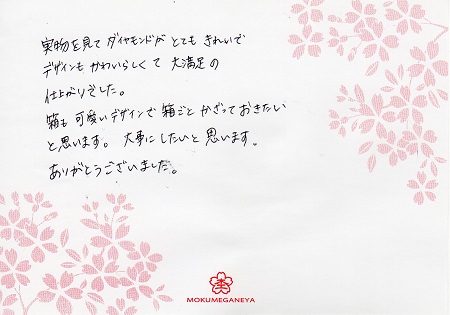 実物を見て ダイヤモンドが とても きれいで
デザインも かわいらしくて 大満足の
仕上がりでした。
箱も 可愛いデザインで 箱ごと かざっておきたい
と思います。 大事にしたいと思います。
ありがとうございました。
MOKUMEGANEYA